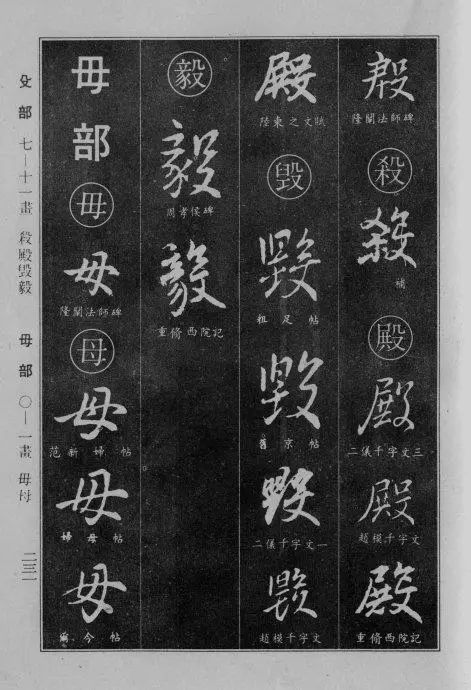 殷
隆闡法師碑
殺
殺
補
殿
殿
二儀千字文三
殿
趙模千字文
殿
重脩西院記
殿
陸柬之文賦
毁
毁
粗足帖
毁
舊京帖
毁
二儀千字文一
毁
趙模千字文
毅
毅
周孝侯碑
毅
重脩西院記
毋部
毋
毋
隆闡法師碑
母
母
范新婦帖
母
婦母帖
母
今帖
殳部 七—十一畫 殺殿毁毅 毋部 〇—一畫 毋母
二三一